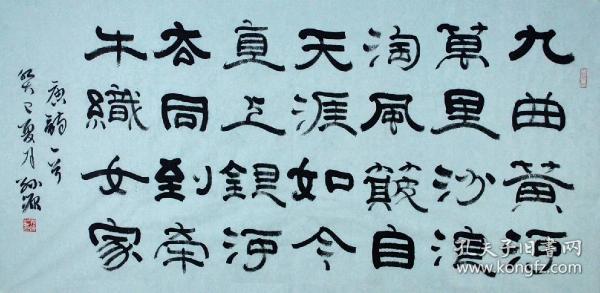 九曲黄河
萬里沙浪
淘風簸自
天涯如今
直上銀河
去同到牽
牛織女家
唐詩一首
癸巳夏月
孔夫子旧书网
www.kongfz.com